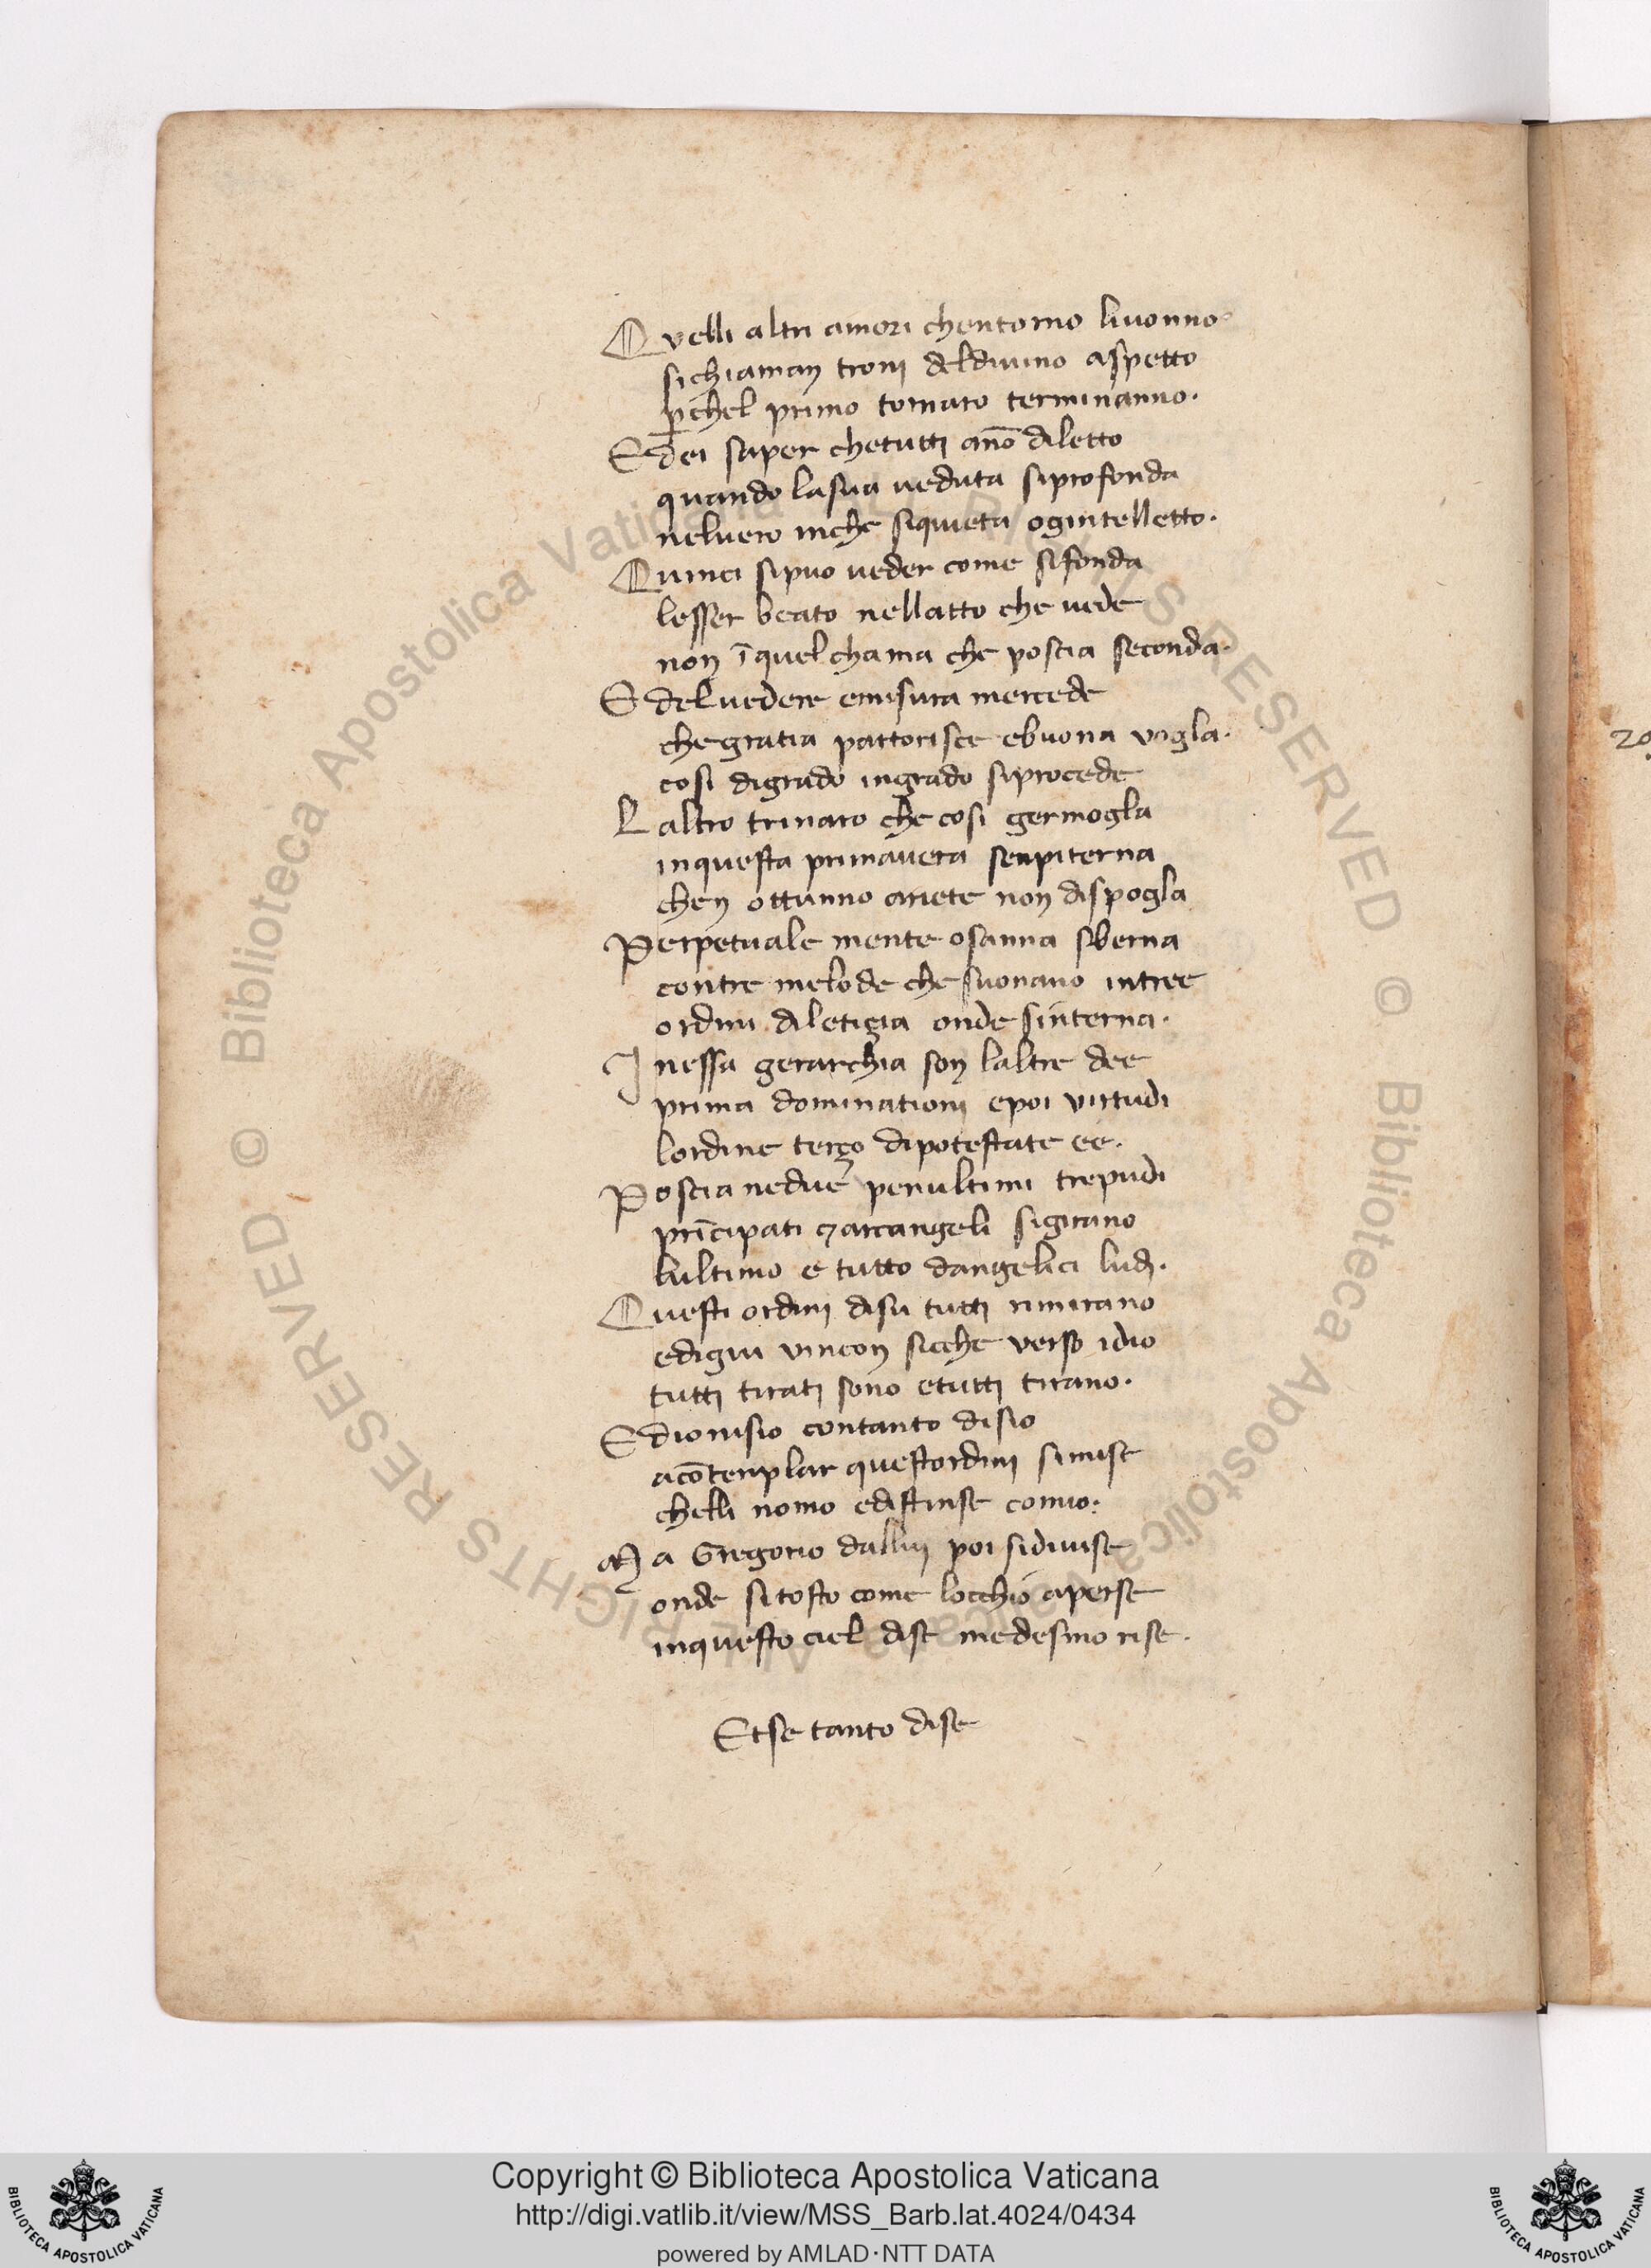 Quelli altri amori chentorno liuonno
sichiaman troni deldiuino aspetto
p̱chel primo ternaro terminanno.
E dei saper chetutti ano᷃ diletto
quando lasua ueduta siprofonda
neluero inche siquieta ogintelletto.
Quinci sipuo ueder come sifonda
lesser beato nellatto che uede
non ī quel chama che poscia seconda.
E deluedere emisura mercede
chegratia partorisce ebuona uogla.
cosi digrado ingrado siprocede
Laltro trinaro che cosi germogla
inquesta primauera senpiterna
chen ottunno ariete non dispogla
Perpetuale mente osanna sberna
contre melode che suonano intree
ordini diletigia onde sinterna.
Inessa gerarchia son laltre dee
prima dominationi epoi uirtudi
lordine terço dipotestate ee.
Poscia nedue penultimi trepudi
prīcipati ⁊ arcangeli sigirano
lultimo e tutto dangelici ludi.
Questi ordini disu tutti rimirano
edigiu uincon sicche uerso idio
tutti tirati sono etutti tirano.
E dionisio contanto disio
acōtenplar questordini simise
chelli nomo edistinse comio.
Ma Gregorio dallui poi sidiuise
onde sitosto come locchio aperse
inquesto ciel dise medesimo rise.
Etse tanto dise
20
© Biblioteca Apostolica Vaticana ALL RIGHTS RESERVED © Biblioteca Apostolica Vaticana ALL RIGHTS RESERVED
Copyright © Biblioteca Apostolica Vaticana
http://digi.vatlib.it/view/MSS_Barb.lat.4024/0434
powered by AMLAD·NTT DATA
BIBLIOTECA APOSTOLICA VATICANA
BIBLIOTECA APOSTOLICA VATICANA